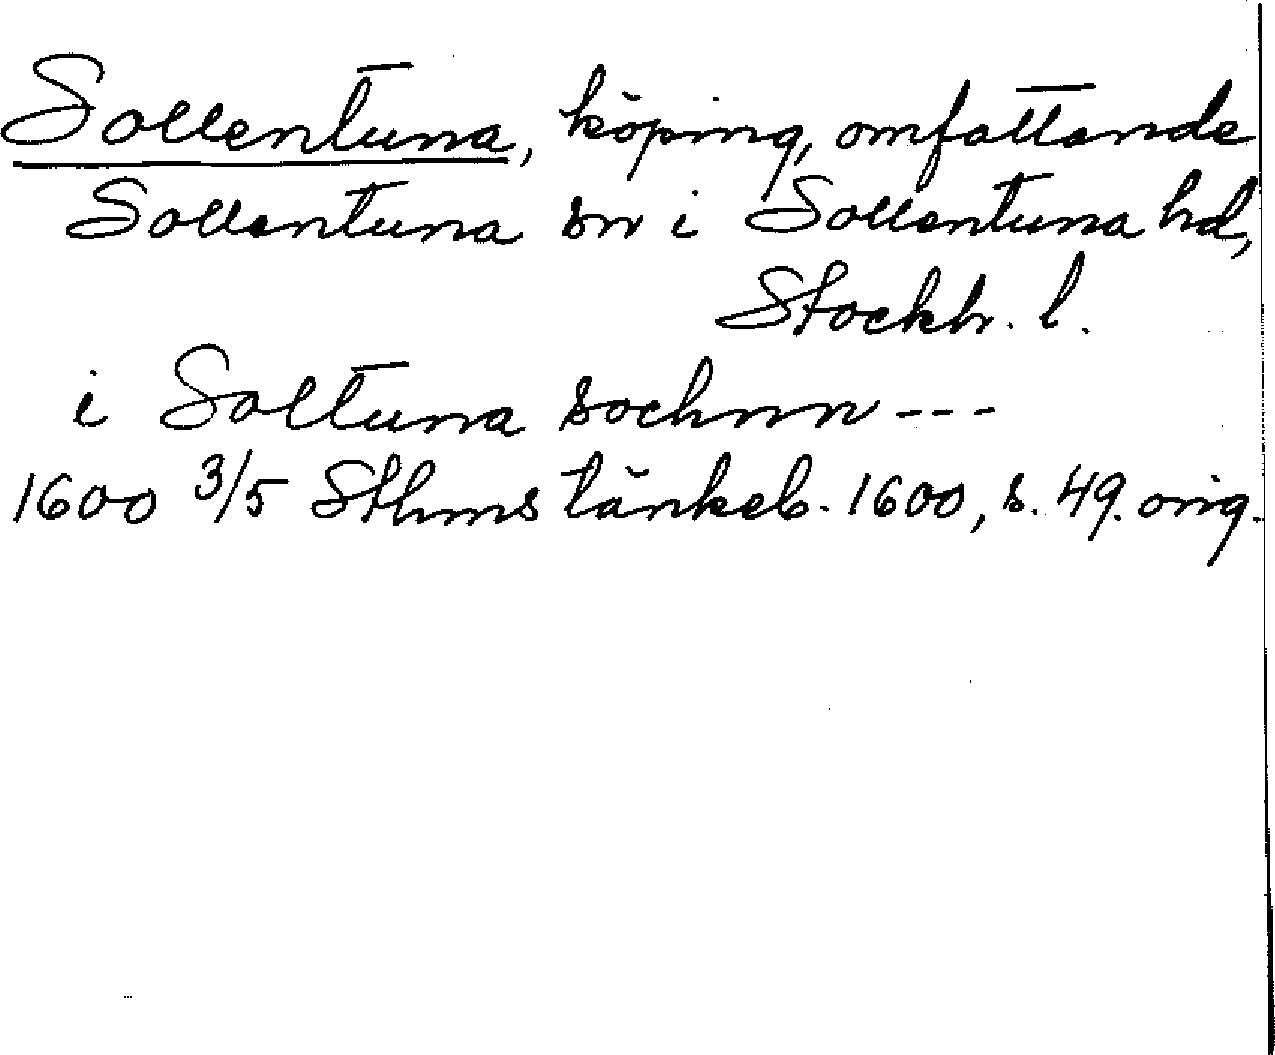 Sollentuna, köping, omfattande
Sollentuna sn i Sollentuna hd,
Stockh. l.
i Soltuna sochnn ---
1600 3/5 Sthms tänkeb. 1600, s. 49. orig.